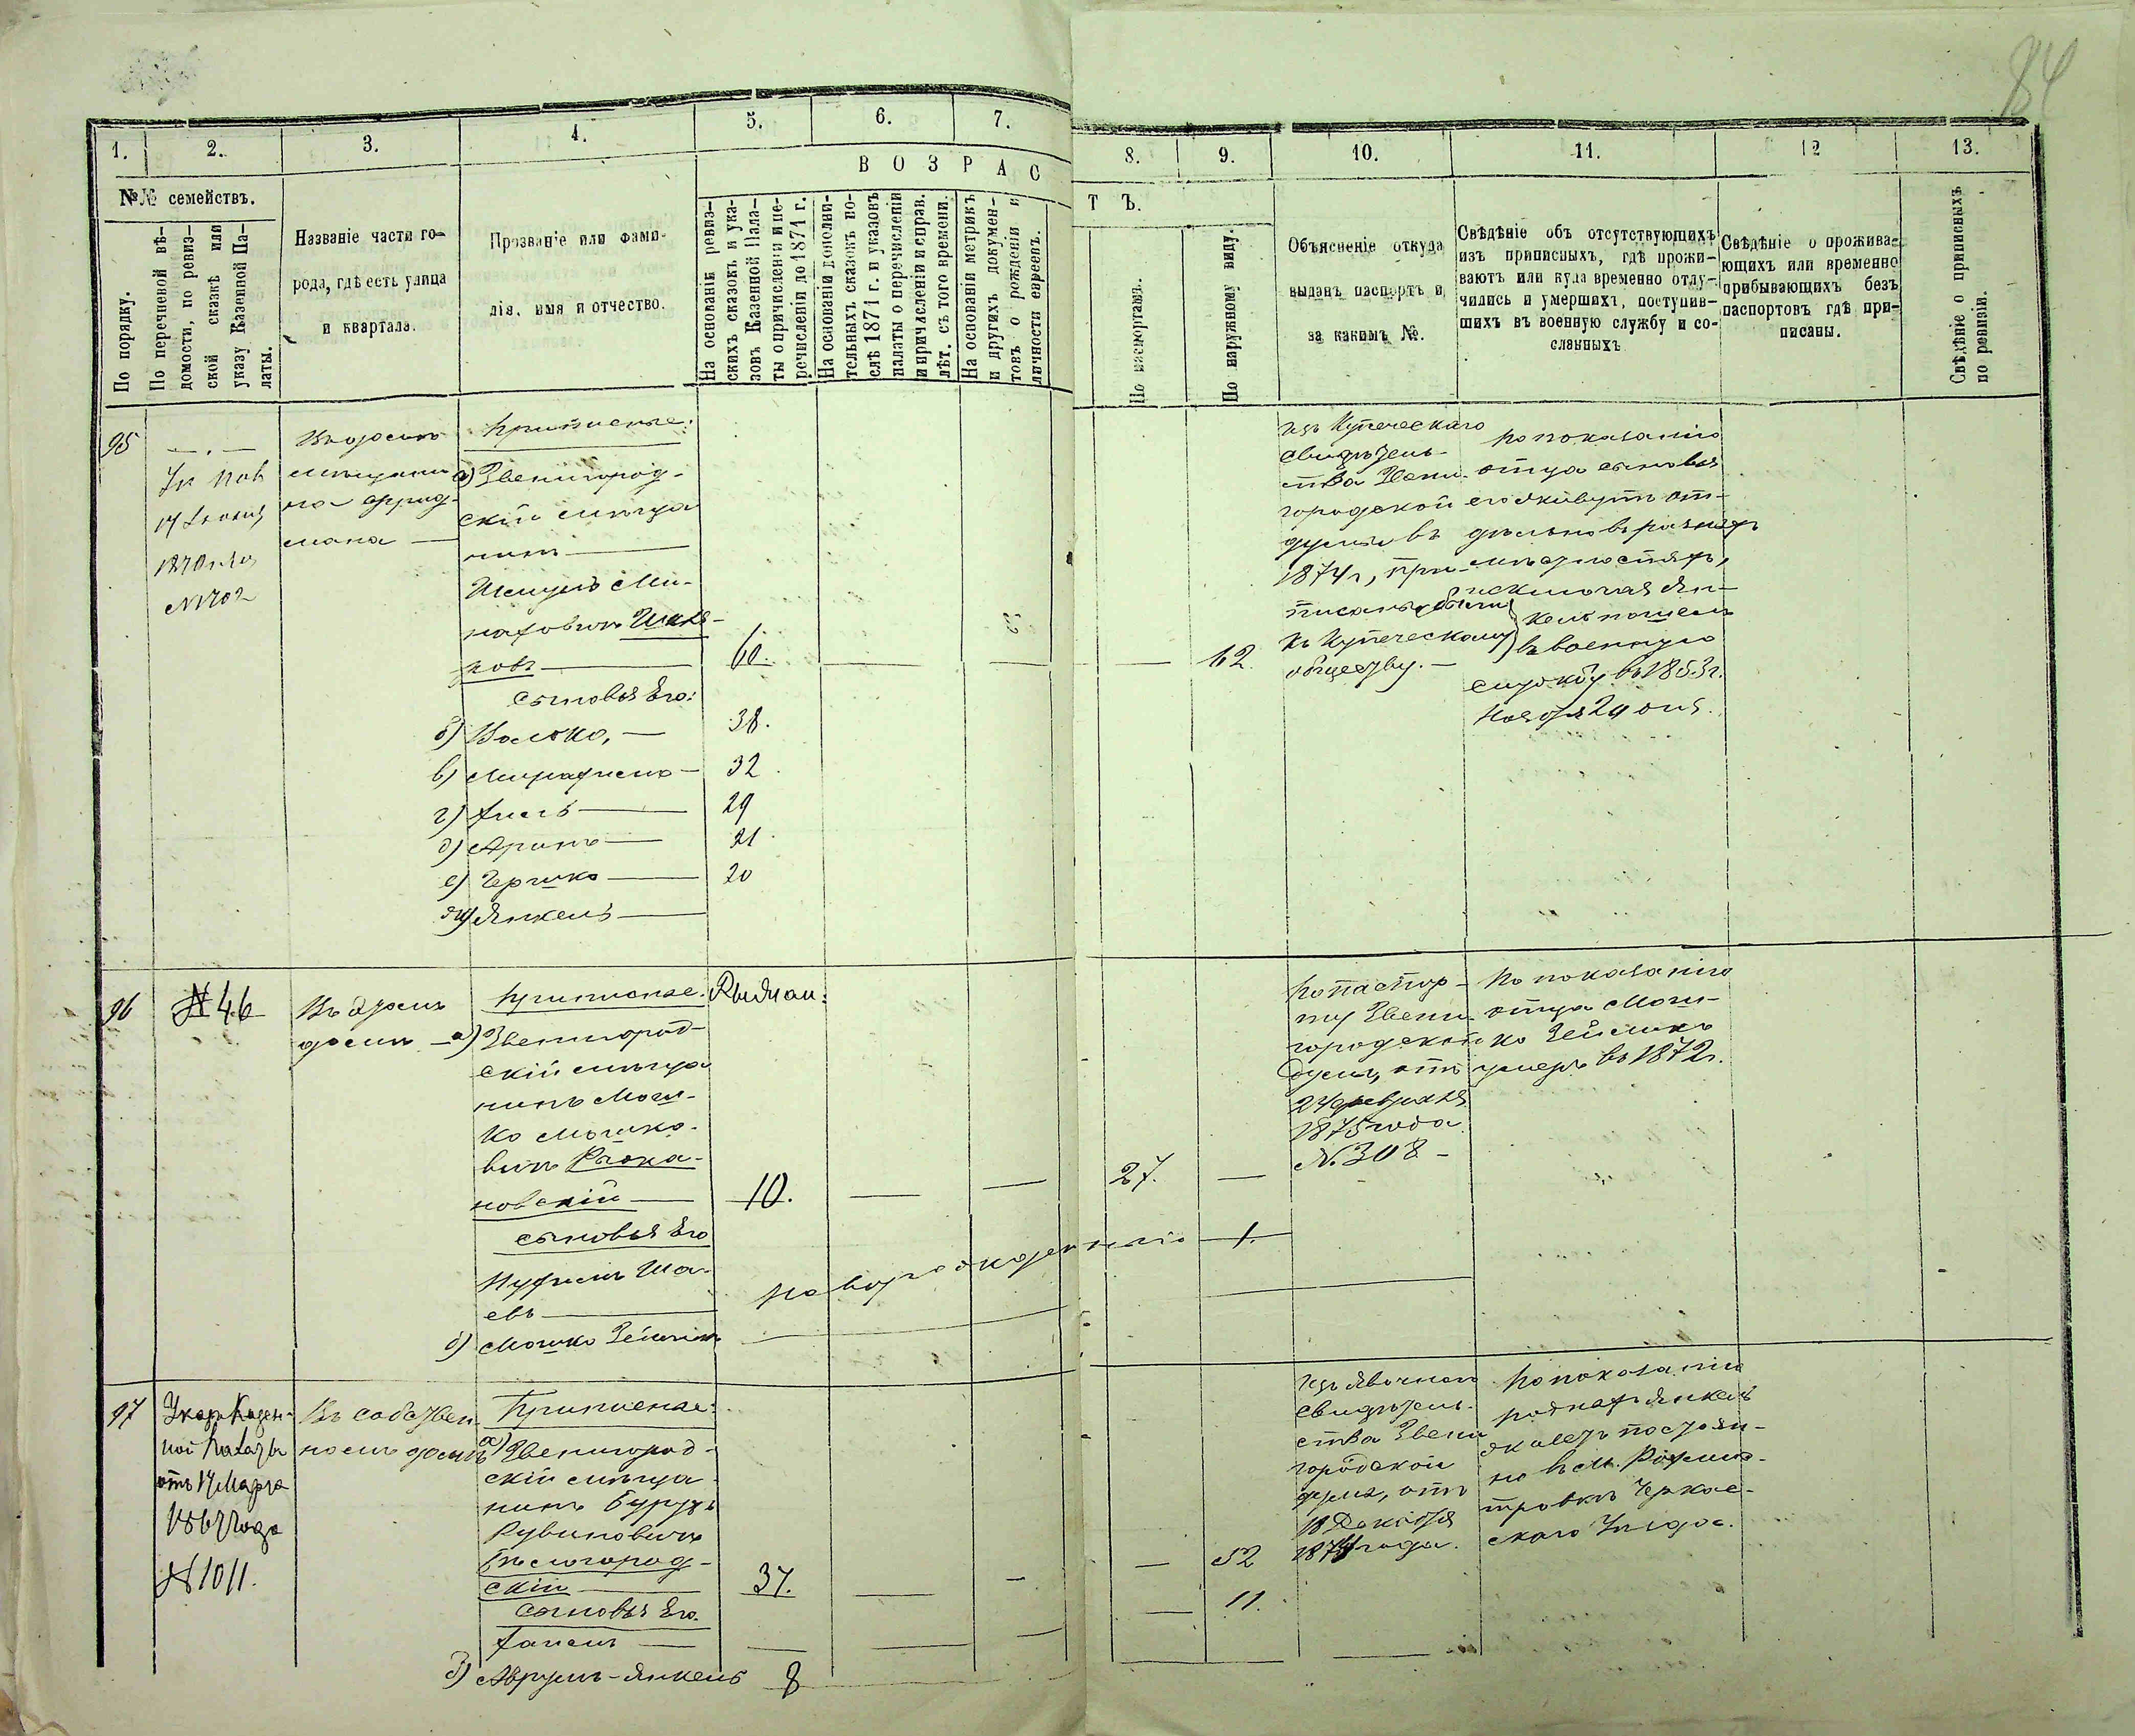 84
1. 2. 3. 4. 5. 6. 7. 8. 9. 10. 11. 12 13.
В О З Р А С Т Ъ.
№№ семействъ.
По порядку.
По перечневой вѣ-
домости, по ревиз-
ской сказкѣ или
указу Казенной Па-
латы.
Названіе части го-
рода, гдѣ есть улица
и квартала.
Прозваніе или фами-
лія, имя и отчество.
На основаніи ревиз-
скихъ сказокъ и ука-
зовъ Казенной Пала-
ты о причисленіи и пе-
речисленіи до 1871 г.
На основаніи дополни-
тельныхъ сказокъ по-
слѣ 1871 г. и указовъ
палаты о перечисленіи
и причисленіи и справ.
лѣт. съ того времени.
На основаніи метрикъ
и другихъ докумен-
товъ о рожденіи и
личности евреевъ.
По паспортамъ.
По наружному виду.
Объясненіе откуда
выданъ паспортъ и
за какимъ №.
Свѣдѣніе объ отсутствующихъ
изъ приписныхъ, гдѣ прожи-
ваютъ или куда временно отлу-
чились и умершихъ, поступив-
шихъ въ военную службу и со-
сланныхъ
Свѣдѣніе о прожива-
ющихъ или временно
прибывающихъ безъ
паспортовъ гдѣ при-
писаны.
Свѣдѣніе о приписныхъ
по ревизіи.
95
1870 года
№ 1702
Въ домѣ
мѣщани
на Фрид-
мана
Приписные:
а) Звенигород-
скій мѣща
нинъ
сыновья Его:
60.
б) Волько, — 38.
в) — 32
г) — 29
д) — 21
е) Гершко — 20
ж) Янкель —
62.
Изъ Купеческаго
свидѣтель-
ства Звени-
городской
думы въ
1874 г, при-
писаны были
къ Купеческому
обществу. —
По показанію
отца сыновья
его живутъ от-
дѣльно въ разныхъ
мѣстностяхъ,
исключая Ян-
келя пошелъ
въ военную
службу въ 1853 г.
Ноября 29 дня.
96
№ 46
Въ домѣ
Приписные:
а) Звенигород-
скій мѣща
нинъ Мош-
ко Мошко-
вичъ
новскій — 10. — — 27. —
сыновья Его
новорожденный — 1.
б) Мошко Зейликъ
По паспор-
ту Звени-
городской
Думы, отъ
24 февраля
1875 года
№ 308 —
По показанію
отца Мош-
ко Зейликъ
умеръ въ 1872 г.
97
Указъ Казен-
ной Палаты
отъ 17 Марта
1867 года
№ 1011.
Въ собствен-
номъ домѣ
Приписные:
а) Звенигород-
скій мѣща
нинъ Бурухъ
Рувиновичъ
Бѣлогород-
скій — 37. — — — 52
сыновья Его.
— — — — — 11.
б) Аврумъ-Янкель 8
Изъ явочнаго
свидѣтель-
ства Звени
городской
думы, отъ
18 Декабря
1874 года.
По показанію
Янкель
живетъ постоян-
но въ м.
Черкас-
скаго Уѣзда.